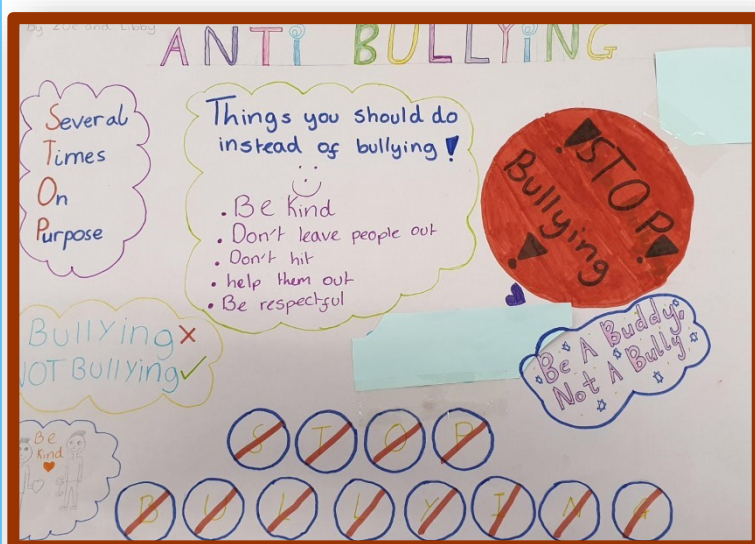 By Zoe and Libby
ANTi BULLYiNG
Several
Times
On
Purpose
Things you should do
instead of bullying!
. Be Kind
. Don't leave people out
. Don't hit
. help them out
. Be respectful
! STOP !
! Bullying !
Bullying ×
NOT Bullying ✓
Be A Buddy,
Not A Bully
Be
Kind
STOP
BULLYING